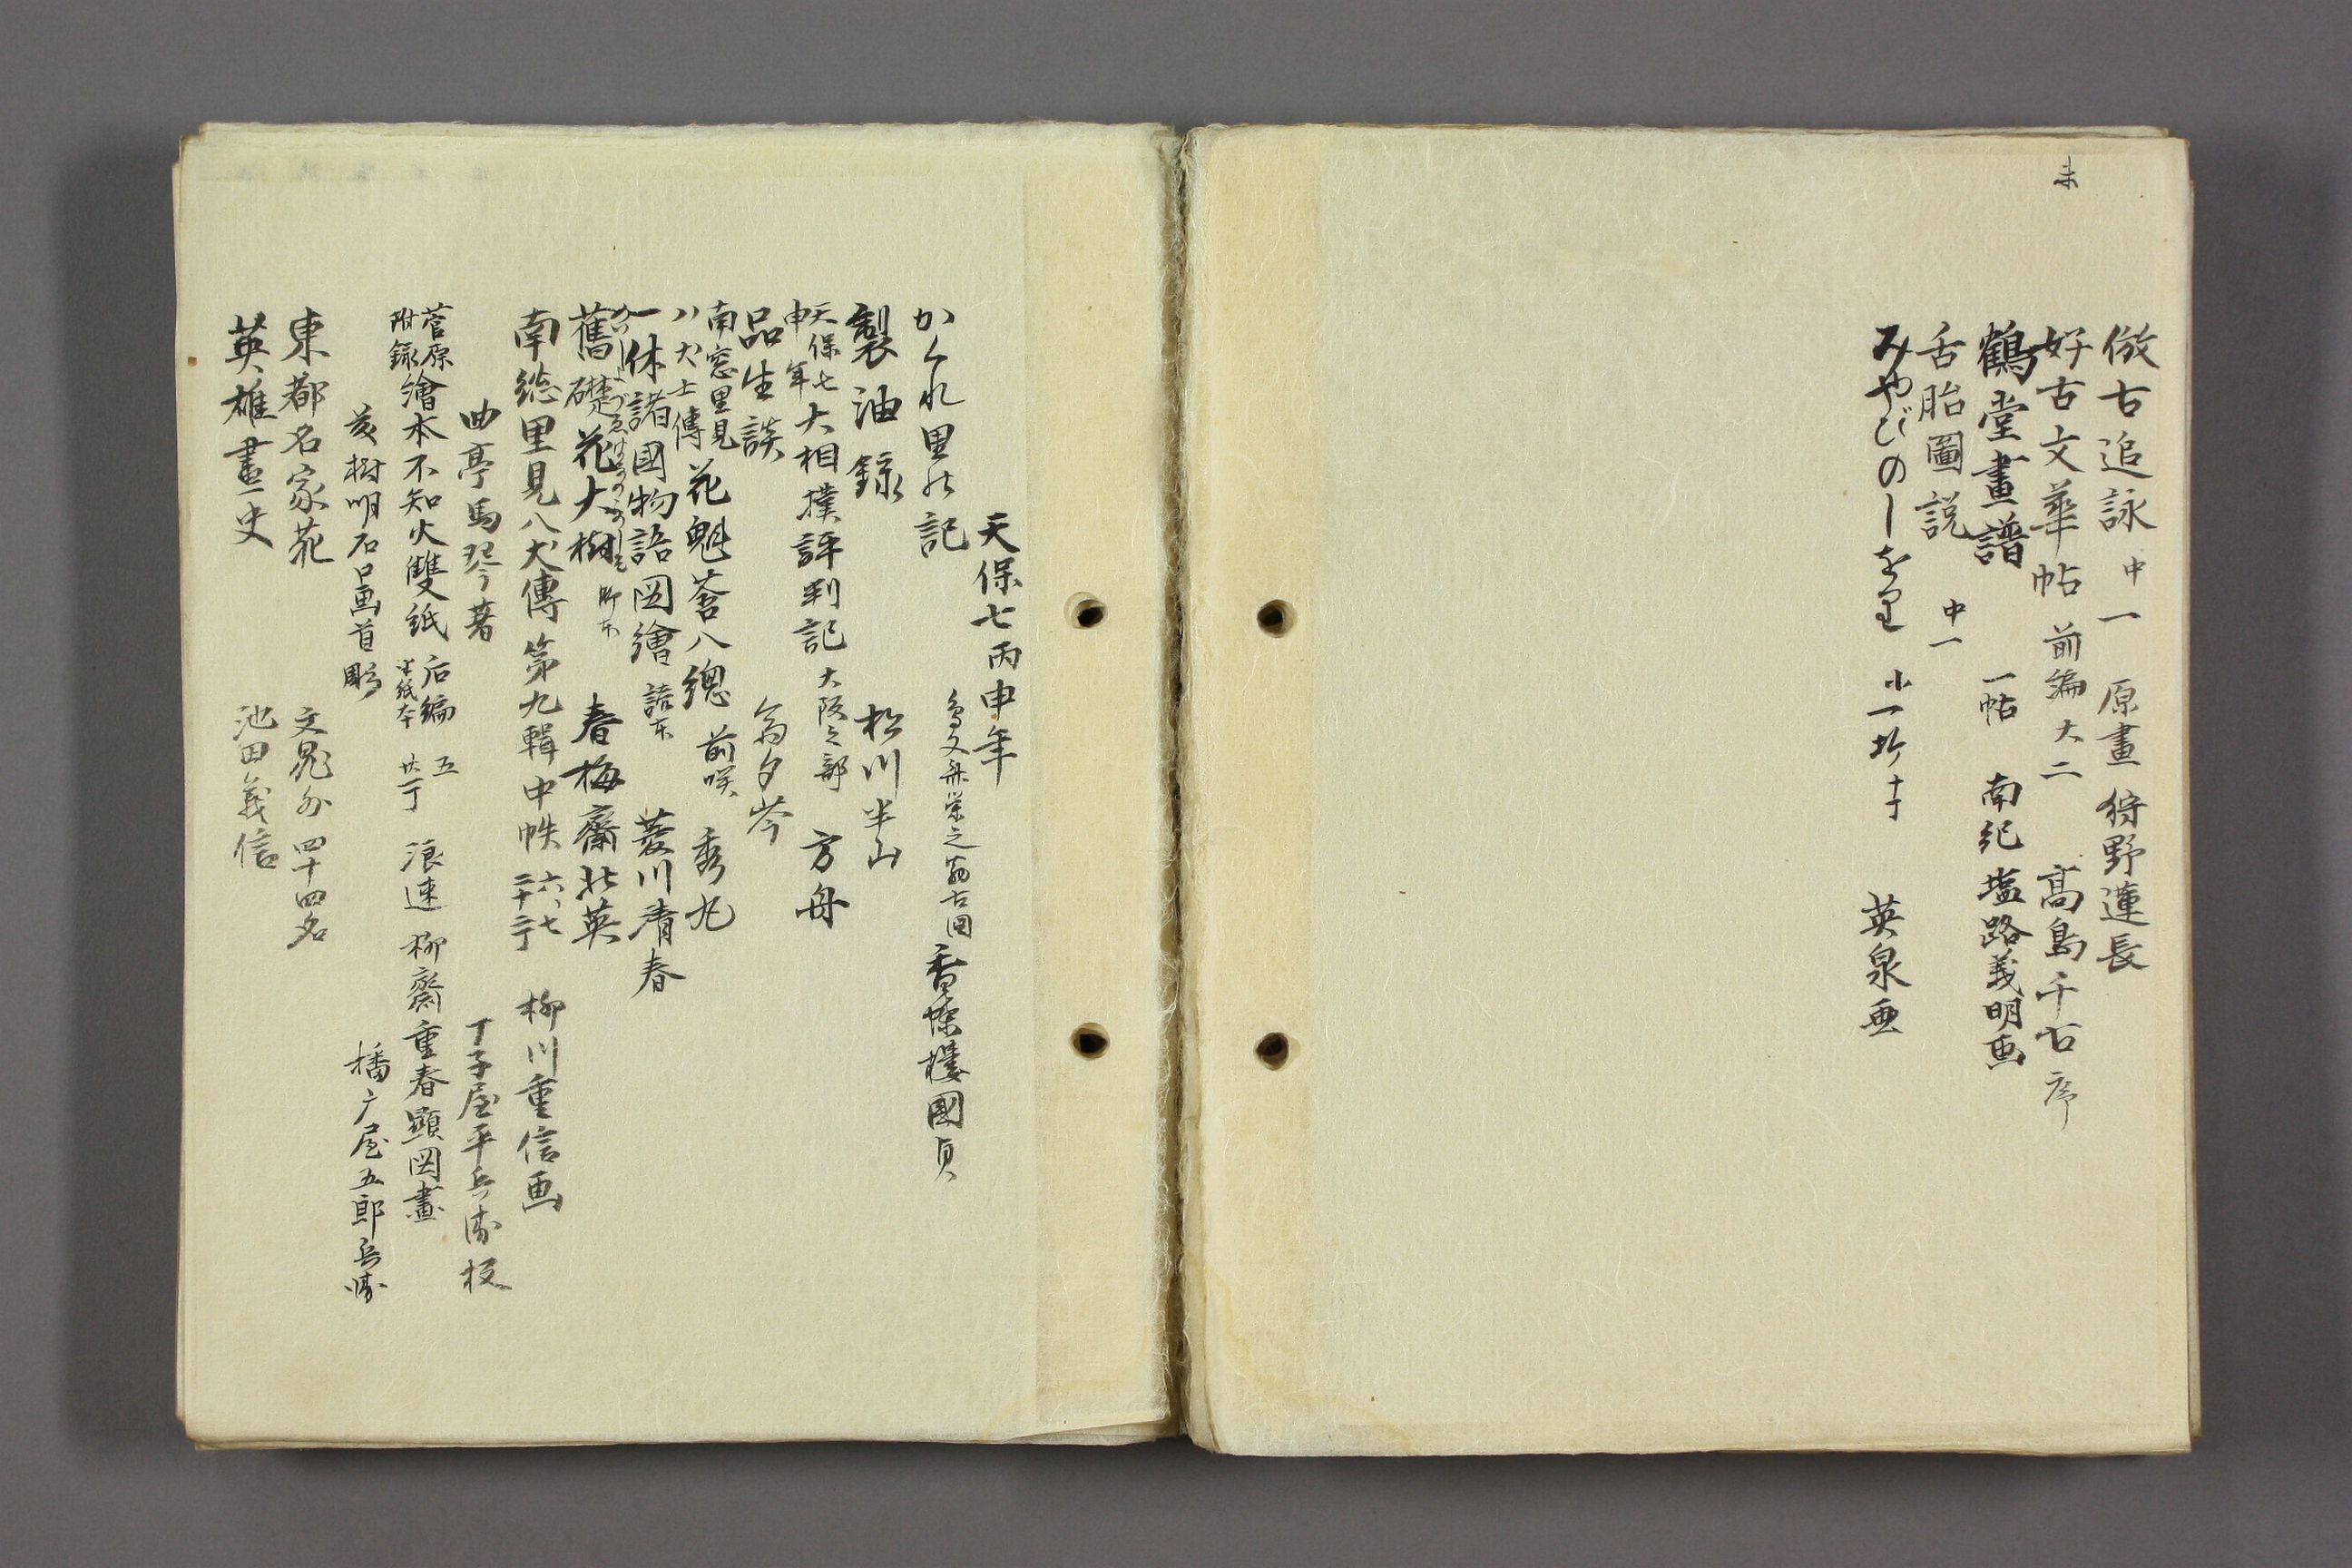 未
倣古追詠 中一 原畫 狩野蓮長
好古文華帖 前編 大二 髙島千古序
鶴堂畫譜 一帖 南紀 塩路義明画
舌胎圖説 中一
みやびのしをり 小一折 英泉画
天保七丙申年
かくれ里の記 鳥文斎栄之翁古図 香蝶樓國貞
製油録 松川半山
天保七申年 大相撲評判記 大阪之部 方舟
品生談 翁夕岑
南窓里見八犬士傳 花魁莟八總 前咲 秀丸
一休諸國物語図繪 読本 菱川清春
舊礎花大樹 春梅齋北英
南総里見八犬傳 第九輯 中帙 六、七 二十二丁 柳川重信画
曲亭馬琴著 丁子屋平兵衛板
菅原附録 繪本不知火雙紙 后編 五 半紙本 浪速 柳齋重春顕図畫
樹明石画首彫 播广屋五郎兵衛
東都名家花 文晁外四十四名
英雄畫史 池田義信